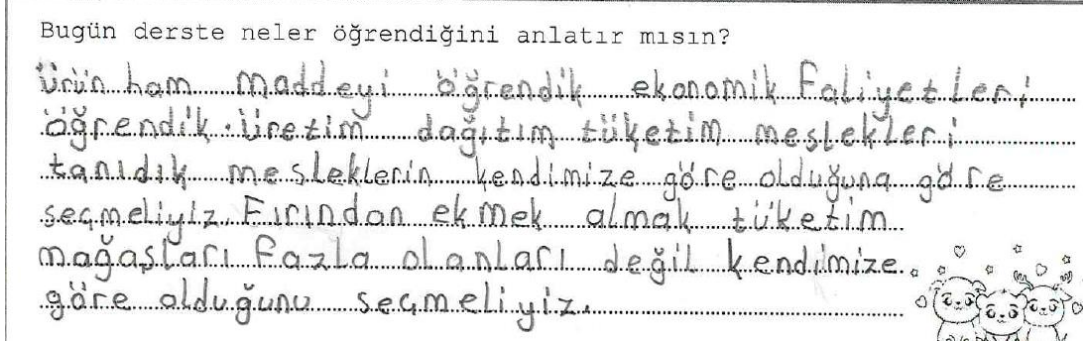 Bugün derste neler öğrendiğini anlatır mısın?
Ürün ham maddeyi öğrendik ekonomik faliyetleri
öğrendik. Üretim dağıtım tüketim meslekleri
tanıdık mesleklerin kendimize göre olduğuna göre
seçmeliyiz. Fırından ekmek almak tüketim
mağaşları fazla olanları değil kendimize
göre olduğunu seçmeliyiz.